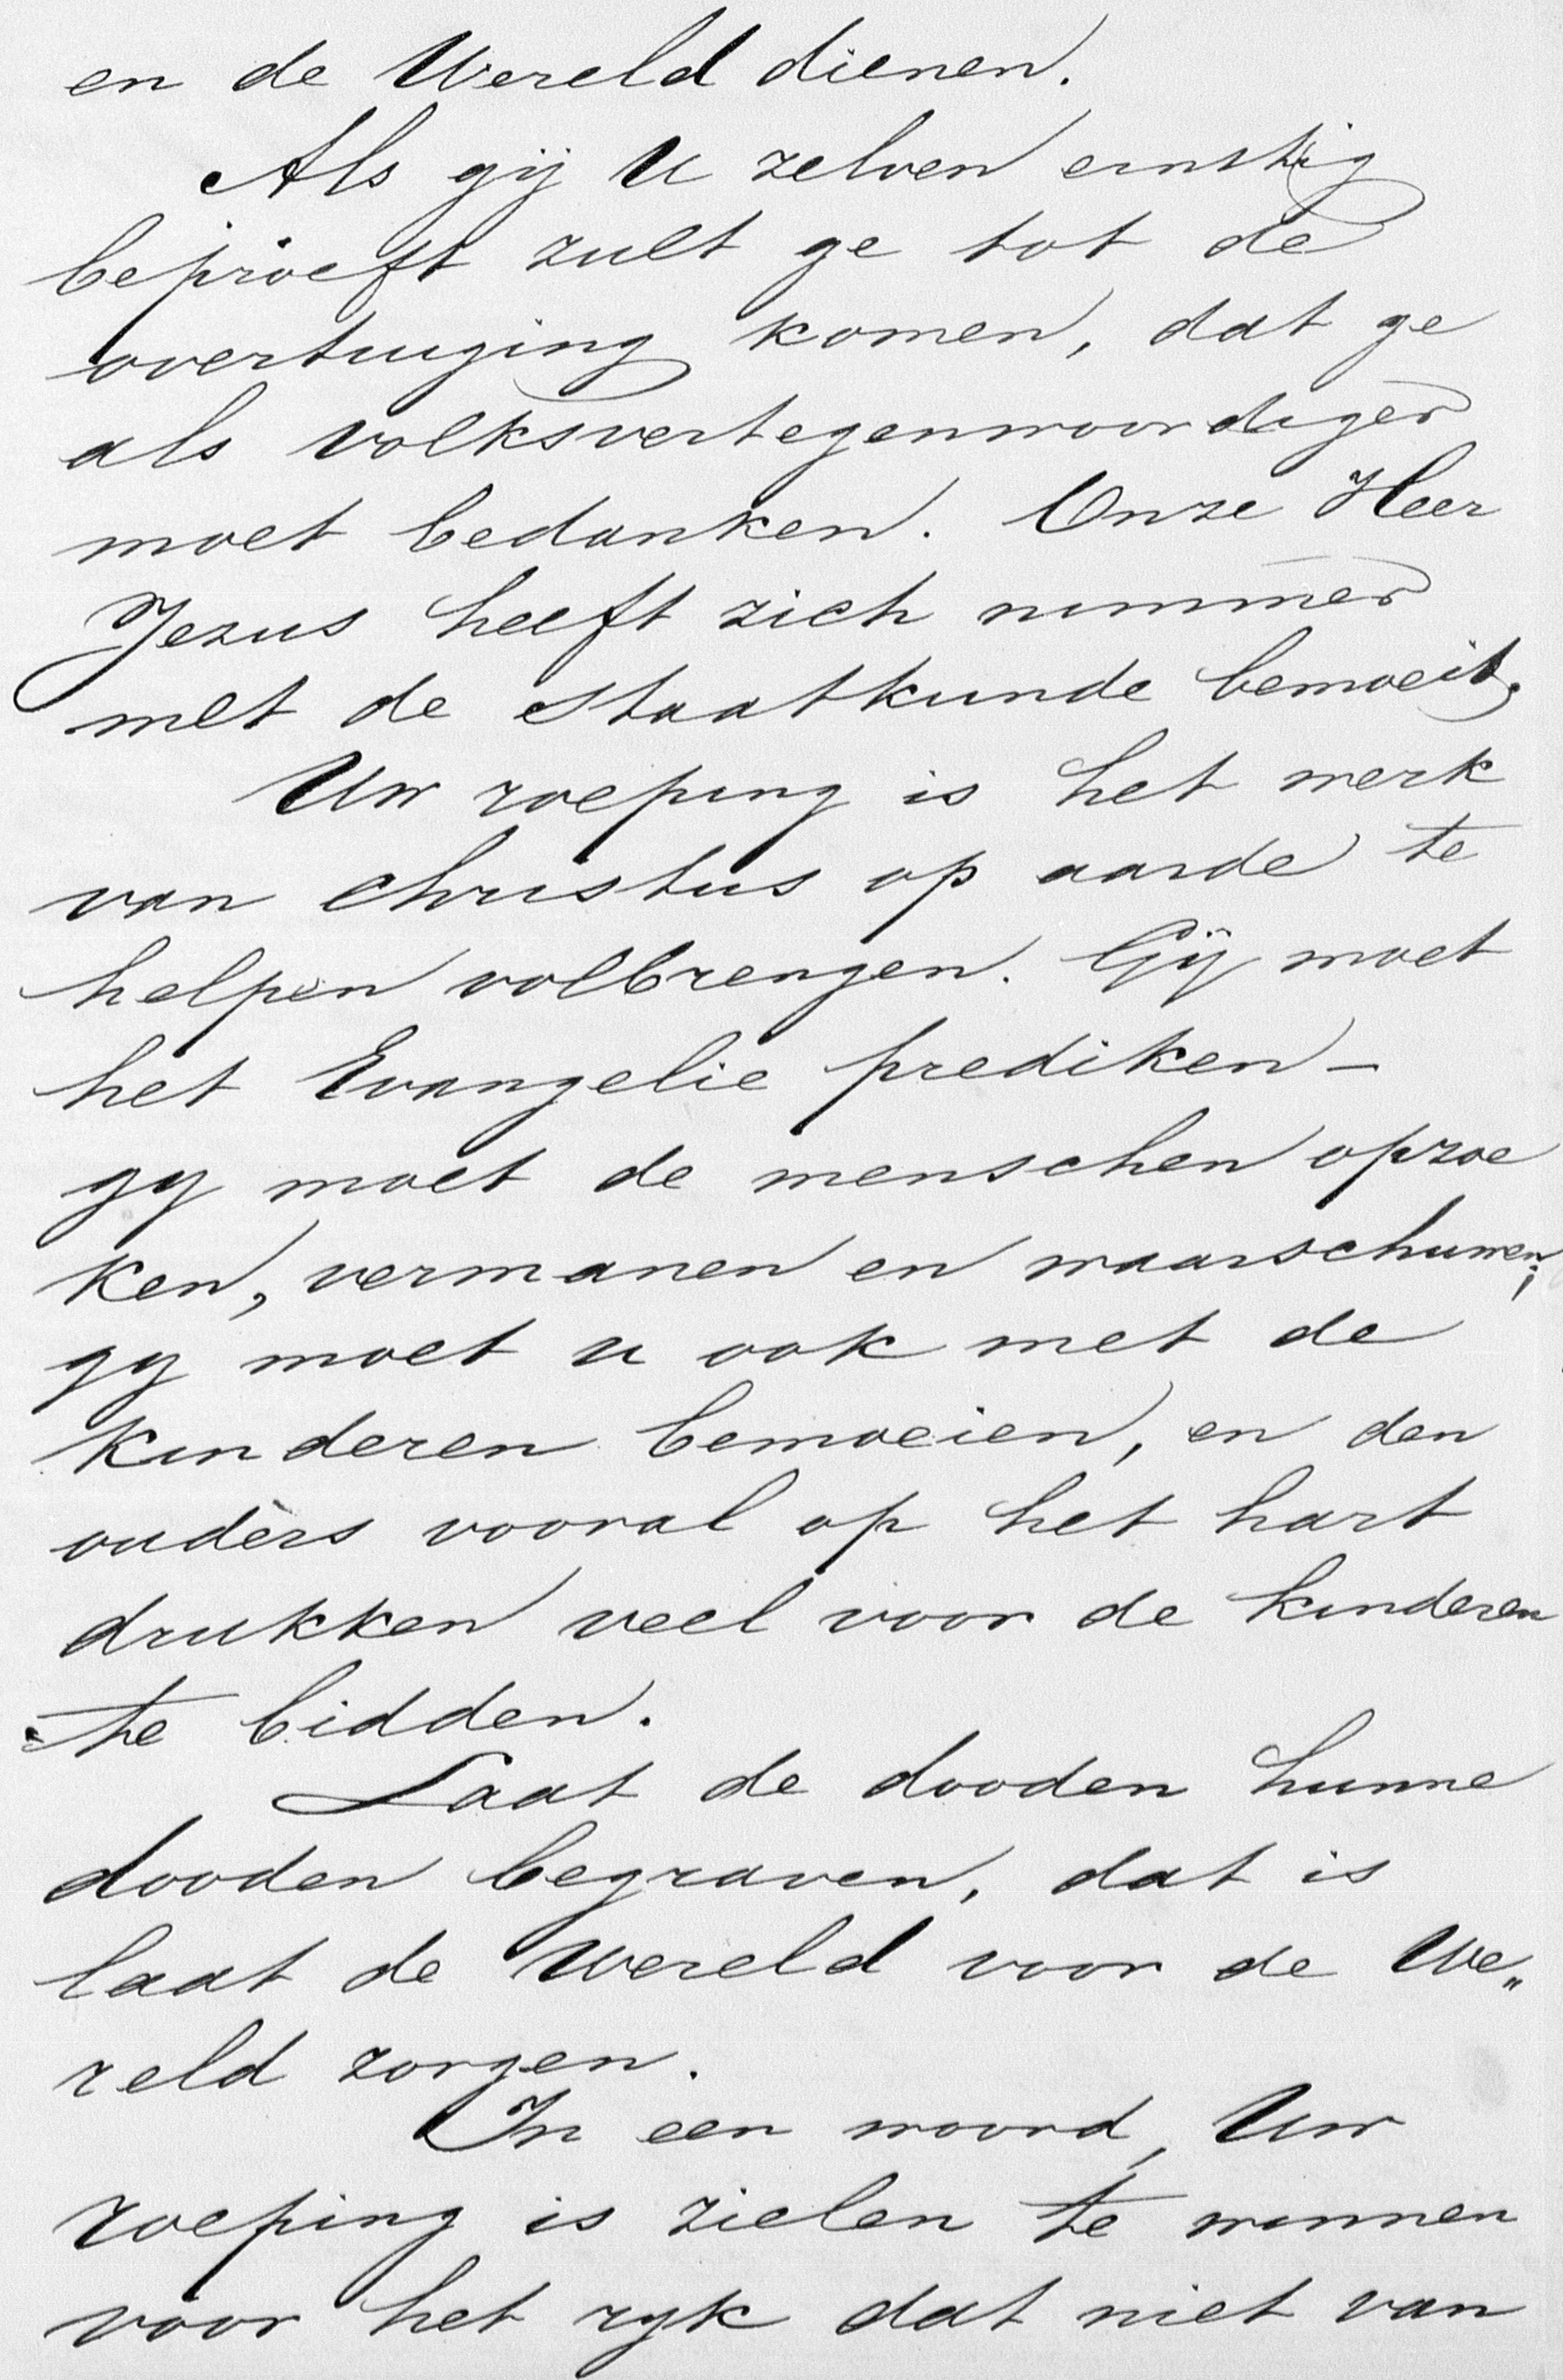 en de Wereld dienen.
Als gij U zelven ernstig
beproeft zult ge tot de
overtuiging komen, dat ge
als volksvertegenwoordiger
moet bedanken. Onze Heer
Jezus heeft zich nimmer
met de staatkunde bemoeit.
Uw roeping is het werk
van Christus op aarde te
helpen volbrengen. Gij moet
het Evangelie prediken –
gy moet de menschen opzoe
ken, vermanen en waarschuwen;
gy moet u ook met de
kinderen bemoeien, en den
ouders vooral op het hart
drukken veel voor de kinderen
te bidden.
Laat de dooden hunne
dooden begraven, dat is
laat de Wereld voor de We„
reld zorgen.
In een woord, Uw
roeping is zielen te winnen
voor het ryk dat niet van